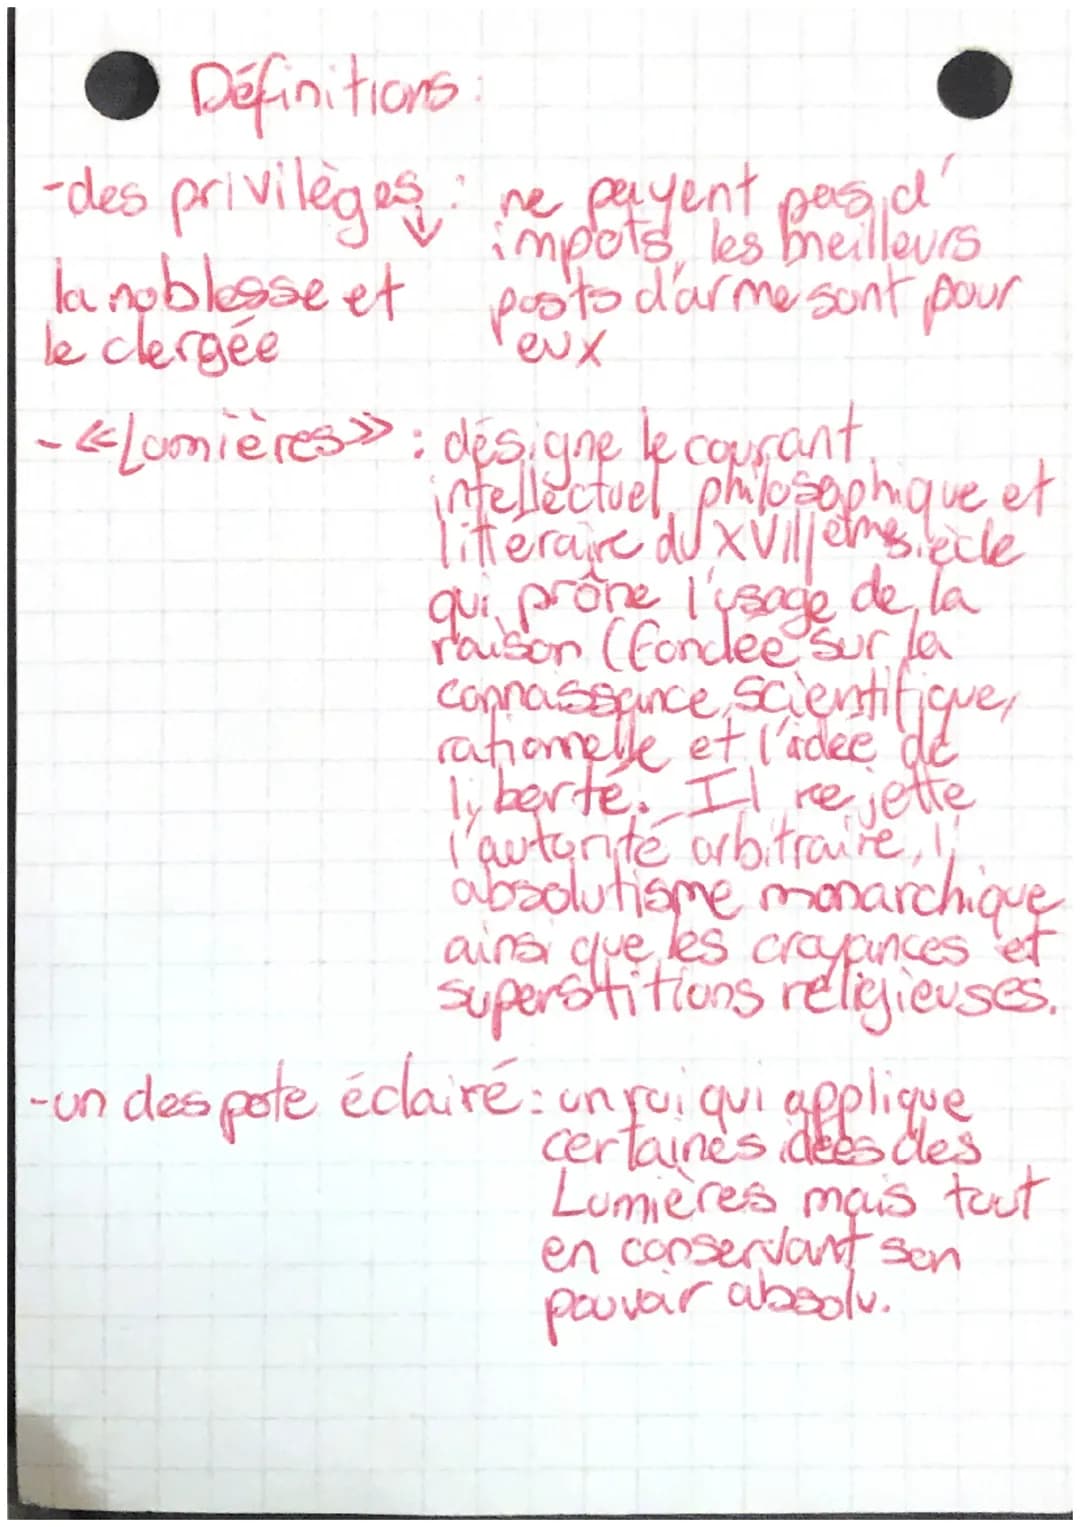 Définitions :
-des privilèges : ne payent pas d'
impots, les meilleurs
la noblesse et posts d'arme sont pour
le clergée eux
- «Lumières» : désigne le courant
intellectuel, philosophique et
littéraire du XVIIIème siècle
qui prône l'usage de la
raison (fondée sur la
connaissance scientifique,
rationnelle et l'idée de
liberté. Il rejette
l'autorité arbitraire, l'
absolutisme monarchique
ainsi que les croyances et
superstitions religieuses.
-un despote éclairé : un roi qui applique
certaines idées des
Lumières mais tout
en conservant son
pouvoir absolu.